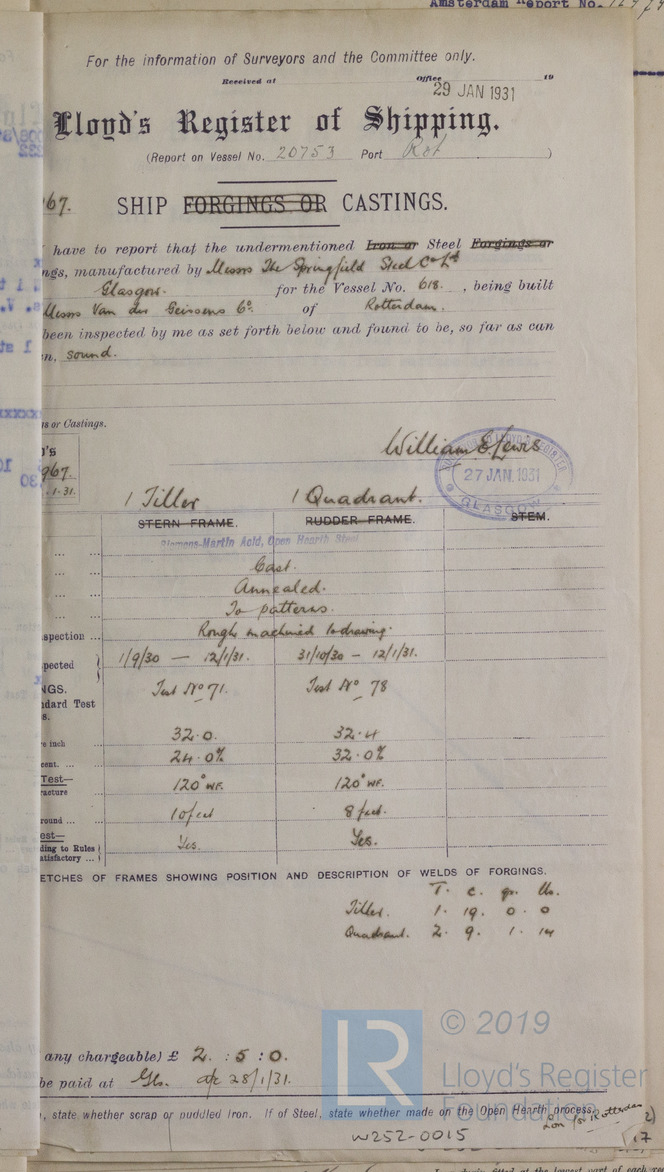 Amsterdam Report No.
For the information of Surveyors and the Committee only.
Received at Office 19
29 JAN 1931
Lloyd's Register of Shipping.
(Report on Vessel No. 20753 Port Rot )
967. SHIP FORGINGS OR CASTINGS.
have to report that the undermentioned Iron or Steel Forgings or
ngs, manufactured by Messrs The Springfield Steel Co Ld
Glasgow. for the Vessel No. 618. , being built
Messrs Van der Geissens Co. of Rotterdam.
been inspected by me as set forth below and found to be, so far as can
n, sound.
s or Castings.
William E Lewis
LLOYD'S REGISTER
27 JAN. 1931
GLASGOW
967.
.1.31.
1 Tiller 1 Quadrant.
STERN FRAME. RUDDER FRAME. STEM.
Siemens-Martin Acid, Open Hearth Steel
Cast.
Annealed.
To patterns.
spection ... Rough machined to drawing.
pected 1/9/30 — 12/1/31. 31/10/30 — 12/1/31.
NGS. Test No 71. Test No 78
dard Test
s.
e inch 32.0. 32.4
cent. ... 24.0% 32.0%
Test—
racture 120° WF. 120° WF.
round ... 10 feet 8 feet.
est—
ding to Rules Yes. Yes.
atisfactory ...
ETCHES OF FRAMES SHOWING POSITION AND DESCRIPTION OF WELDS OF FORGINGS.
T. c. qr. lbs.
Tiller. 1. 19. 0. 0
Quadrant. 2. 9. 1. 14
any chargeable) £ 2. : 5 : 0.
be paid at Gls. 28/1/31.
, state whether scrap or puddled Iron. If of Steel, state whether made on the Open Hearth process.
© 2019
LR
Lloyd's Register
Foundation
W252-0015